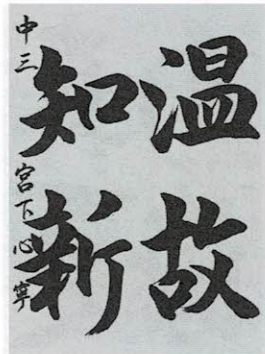 温故
知新
中三 宮下心寧